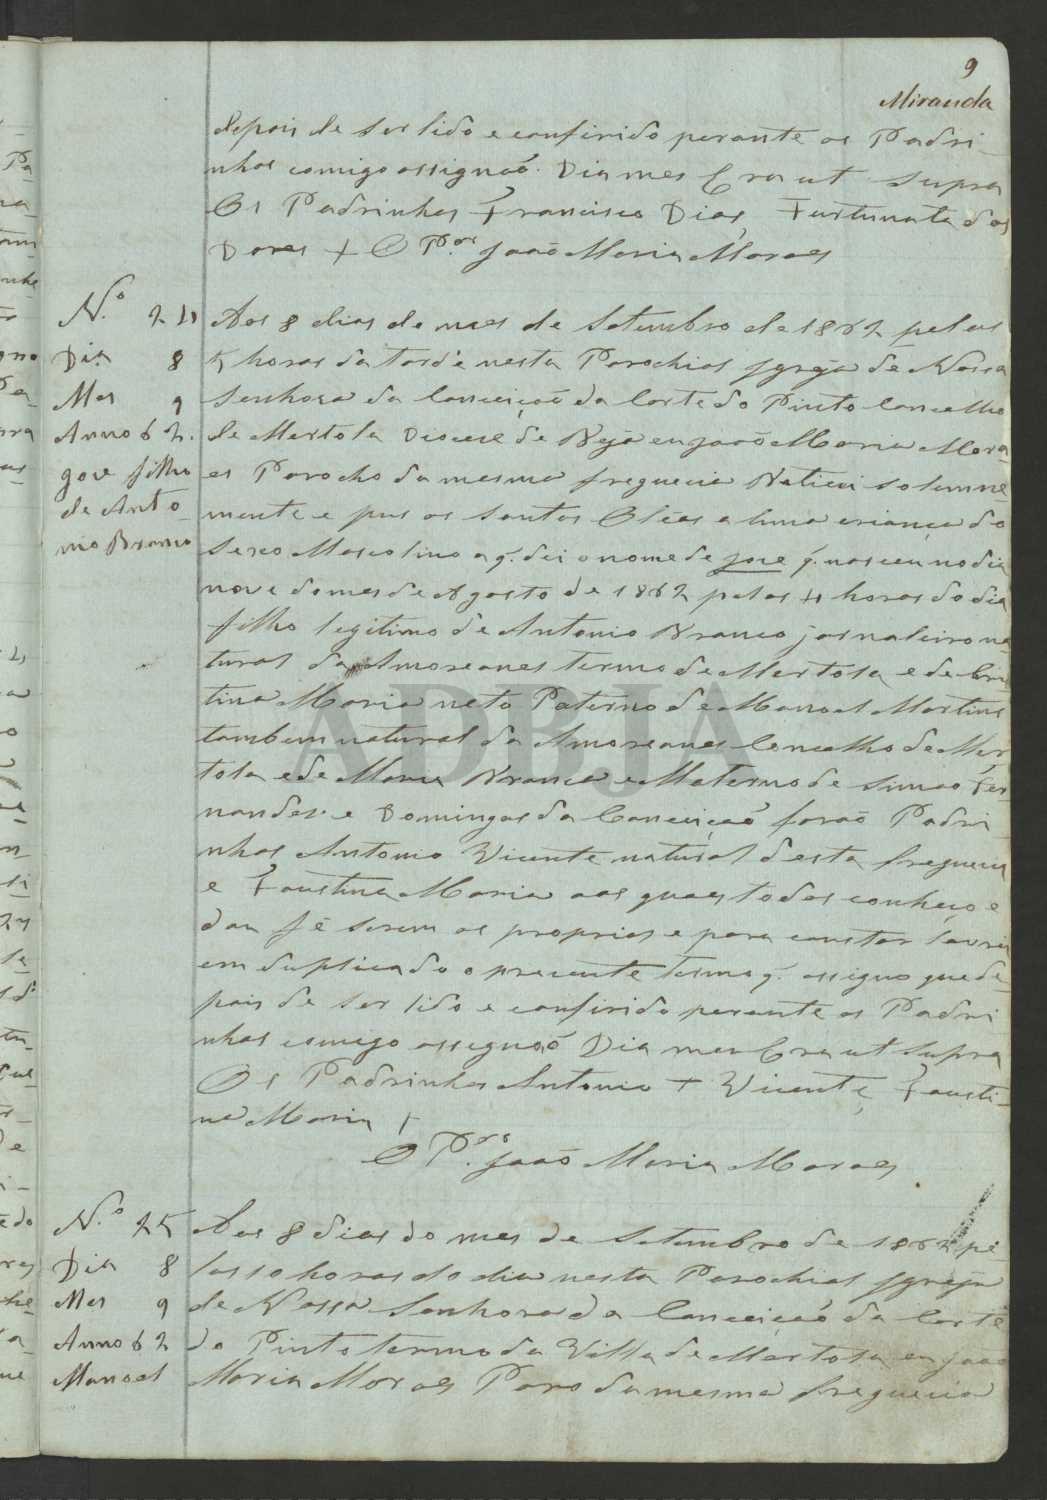 9
Miranda
depois de ser lido e conferido perante os Padri-
nhos comigo assignaõ. Dia mes Era ut supra
Os Padrinhos Francisco Dias, Furtunata das
Dores + O P.or João Maria Moraes
N.o 24
Dia 8
Mes 9
Anno 62.
Jose filho
de Anto-
nio Branco
Aos 8 dias do mes de Setembro de 1862 pelas
5 horas da tarde nesta Parochial Igreja de Nossa
Senhora da Conceição da Corte do Pinto Concelho
de Mertola Diocese de Beja eu João Maria Mora-
es Parocho da mesma freguecia Batizei solemne-
mente e pus os Santos Oleos a huma criança do
Sexo Mascolino a q. dei o nome de Jose q. nasceu no dia
nove do mes de Agosto de 1862 pelas 4 horas do dia
filho legitimo de Antonio Branco jornaleiro na-
tural da Amoreanes termo de Mertola e de Cris-
tina Maria neto Paterno de Manoel Martins
tambem natural da Amoreanes Concelho de Mer-
tola e de Maria Branca e Materno de Simao Fer-
nandes e Domingas da Conceição foraõ Padri-
nhos Antonio Vicente natural desta freguecia
e Faustina Maria aos quaes todos conheço e
dou fé serem os proprios e para constar lavrei
em duplicado o precente termo q. assigno que de-
pois de ser lido e conferido perante os Padri-
nhos comigo assignaõ Dia mes Era ut supra
Os Padrinhos Antonio + Vicente, Fausti-
na Maria +
O P.or João Maria Moraes
N.o 25
Dia 8
Mes 9
Anno 62
Manoel
Aos 8 dias do mes de Setembro de 1862 pe-
las 10 horas do dia nesta Parochial Igreja
de Nossa Senhora da Conceição da Corte
do Pinto termo da Villa de Mertola eu João
Maria Moraes Paro da mesma freguecia
ADBJA